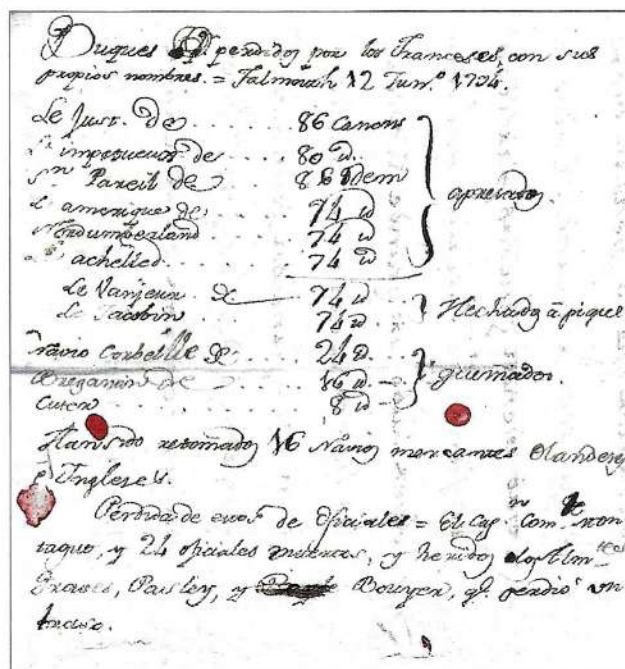 Buques perdidos por los Franceses, con sus
propios nombres. = Falmouth 12 Jun.º 1794.
Le Just. de . . . . 86 Canons
L'impetueux de . . . . 80 id.
Sn Pareil de . . . 86 Idem
L'amerique de . . . . 74 id
Nordumberland 74 id
L' achelles . . . . 74 id
apresados
Le Vanjeur de 74 id
Le Jacobin . . . . 74 id
Hechados á pique
Navio Corbeille de . . 24 id.
Bregantin de . . . . 16 id.
Cuter . . . . 8 id
quemados.
Han sido retomados 16 Navios mercantes Olandeses
é Ingleses.
Perdida de de Oficiales = El Capn Com.te Mon
taguo, y 24 oficiales muertos, y heridos los Almtes
Graves, Pasley, y Bouyer, q.e perdió un
brazo.